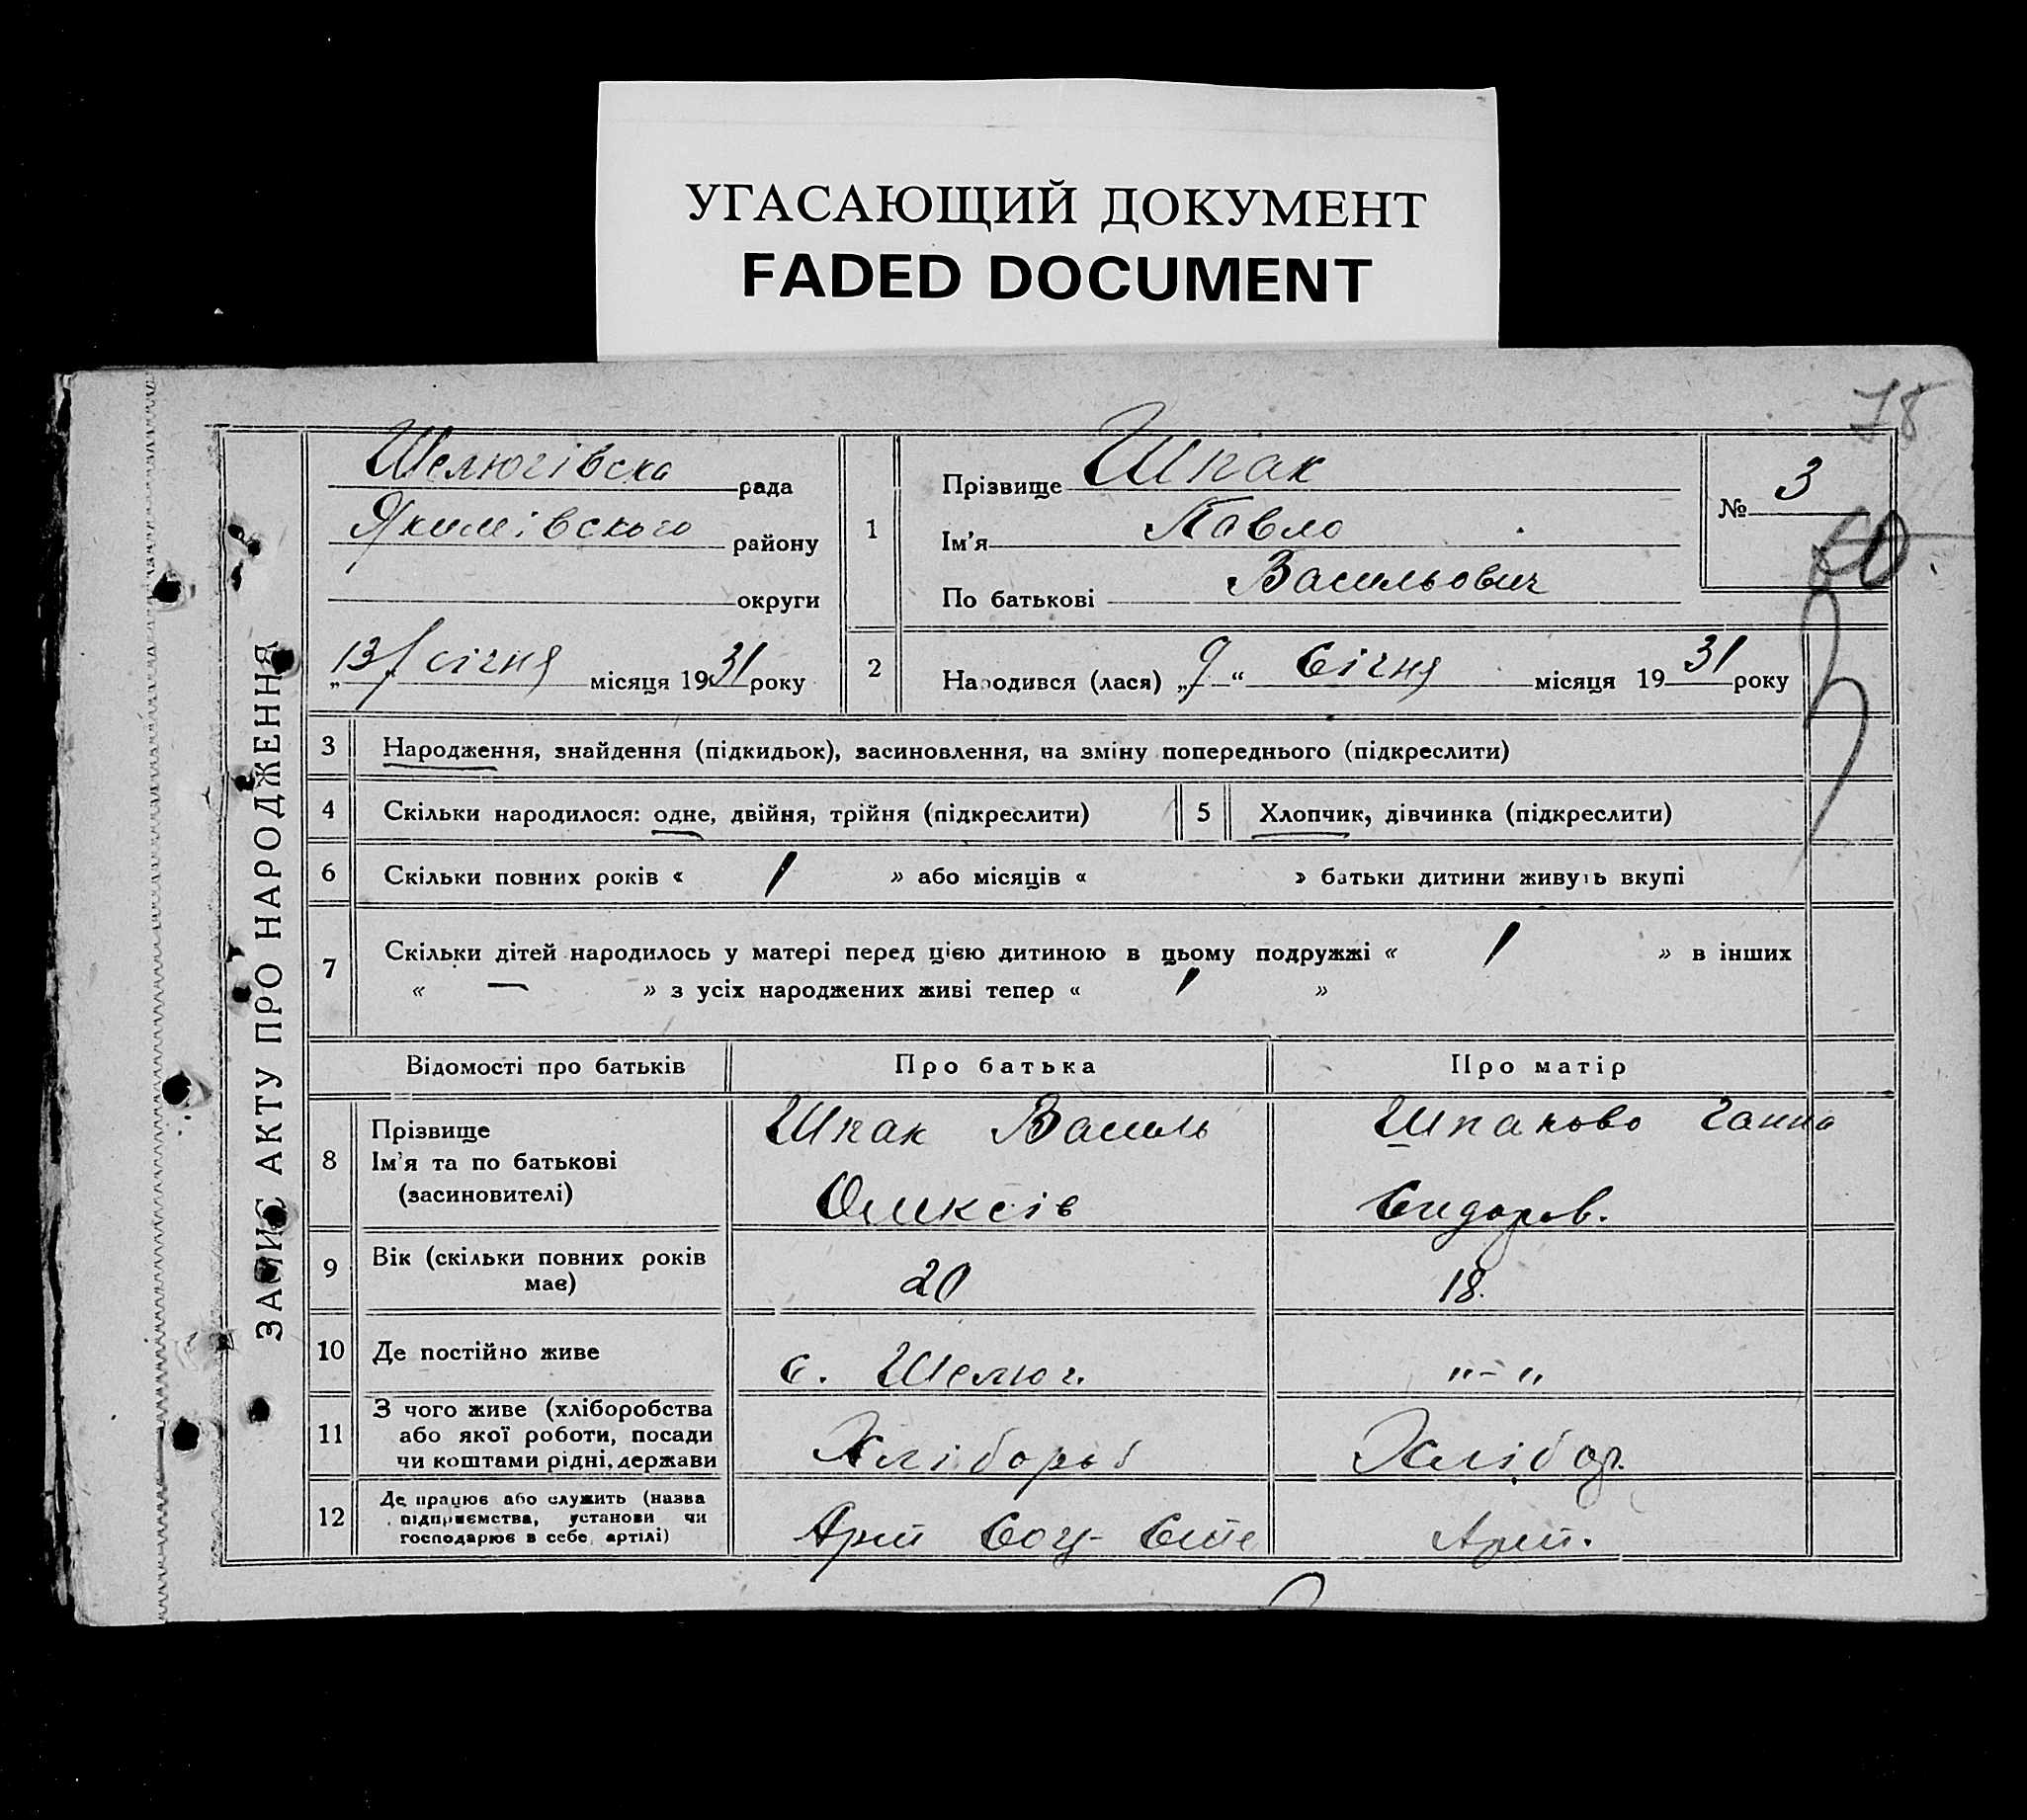 УГАСАЮЩИЙ ДОКУМЕНТ
FADED DOCUMENT
78
ЗАПИС АКТУ ПРО НАРОДЖЕННЯ
Шелюгівска рада
Якимівского району
округи
13/січня місяця 1931 року
1
Прізвище Шпак
Ім'я Павло
По батькові Васильович
№ 3
2
Народився (лася) „9“ Січня місяця 1931 року
3 Народження, знайдення (підкидьок), засиновлення, на зміну попереднього (підкреслити)
4 Скільки народилося: одне, двійня, трійня (підкреслити)
5 Хлопчик, дівчинка (підкреслити)
6 Скільки повних років « 1 » або місяців « » батьки дитини живуть вкупі
7 Скільки дітей народилось у матері перед цією дитиною в цьому подружжі « 1 » в інших
« — » з усіх народжених живі тепер « 1 »
Відомості про батьків Про батька Про матір
8 Прізвище
Ім'я та по батькові
(засиновителі)
Шпак Василь
Олексів
Шпаково Ганна
Сидоров.
9 Вік (скільки повних років
має)
20
18.
10 Де постійно живе с. Шелюг. "-"
11 З чого живе (хліборобства
або якої роботи, посади
чи коштами рідні, держави
Хлібор.
12 Де працює або служить (назва
підприємства, установи чи
господарює в себе, артілі)
Арт Соц-Сте
Арт.